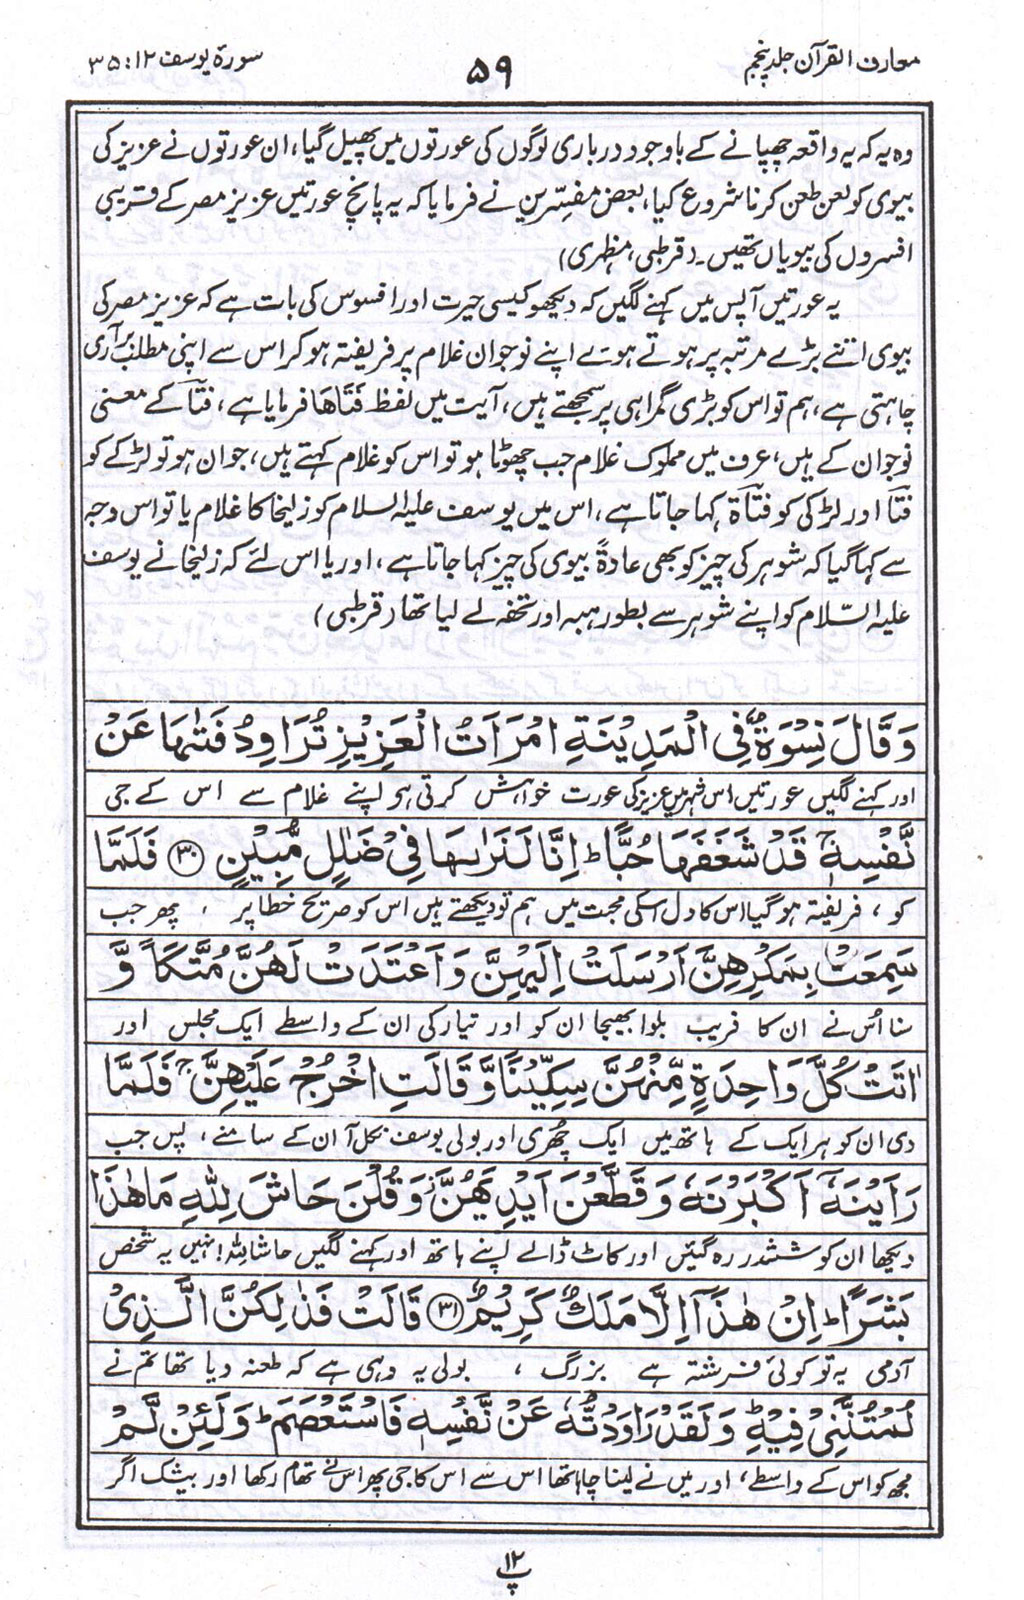 معارف القرآن جلد پنجم
۵۹
سورۃ یوسف ۱۲ : ۳۵
وہ یہ کہ یہ واقعہ چھپانے کے باوجود درباری لوگوں کی عورتوں میں پھیل گیا، ان عورتوں نے عزیز کی
بیوی کو لعن طعن کرنا شروع کیا، بعض مفسّرین نے فرمایا کہ یہ پانچ عورتیں عزیز مصر کے قریبی
افسروں کی بیویاں تھیں۔ (قرطبی، مظہری)
یہ عورتیں آپس میں کہنے لگیں کہ دیکھو کیسی حیرت اور افسوس کی بات ہے کہ عزیز مصر کی
بیوی اتنے بڑے مرتبہ پر ہوتے ہوئے اپنے نوجوان غلام پر فریفتہ ہو کر اس سے اپنی مطلب برآری
چاہتی ہے، ہم تو اس کو بڑی گمراہی پر سمجھتے ہیں، آیت میں لفظ فَتٰىھَا فرمایا ہے، فتٰا کے معنی
نوجوان کے ہیں، عرف میں مملوک غلام جب چھوٹا ہو تو اس کو غلام کہتے ہیں، جوان ہو تو لڑکے کو
فتٰا اور لڑکی کو فتاۃ کہا جاتا ہے، اس میں یوسف علیہ السلام کو زلیخا کا غلام یا تو اس وجہ
سے کہا گیا کہ شوہر کی چیز کو بھی عادۃً بیوی کی چیز کہا جاتا ہے، اور یا اس لئے کہ زلیخا نے یوسف
علیہ السّلام کو اپنے شوہر سے بطور ہبہ اور تحفہ لے لیا تھا (قرطبی)
وَقَالَ نِسْوَةٌ فِی الْمَدِیْنَةِ امْرَاَتُ الْعَزِیْزِ تُرَاوِدُ فَتٰىهَا عَنْ
اور کہنے لگیں عورتیں اس شہر میں عزیز کی عورت خواہش کرتی ہے اپنے غلام سے اس کے جی
نَّفْسِهٖ ۚ قَدْ شَغَفَهَا حُبًّا ؕ اِنَّا لَنَرٰىهَا فِیْ ضَلٰلٍ مُّبِیْنٍ ﴿۳۰﴾ فَلَمَّا
کو، فریفتہ ہو گیا اس کا دل اسکی محبت میں ہم تو دیکھتے ہیں اس کو صریح خطا پر، پھر جب
سَمِعَتْ بِمَكْرِهِنَّ اَرْسَلَتْ اِلَیْهِنَّ وَاَعْتَدَتْ لَهُنَّ مُتَّكَاً وَّ
سنا اُس نے ان کا فریب بلوا بھیجا ان کو اور تیار کی ان کے واسطے ایک مجلس اور
اٰتَتْ كُلَّ وَاحِدَةٍ مِّنْهُنَّ سِكِّیْنًا وَّ قَالَتِ اخْرُجْ عَلَیْهِنَّ ۚ فَلَمَّا
دی ان کو ہر ایک کے ہاتھ میں ایک چُھری اور بولی یوسف نکل آ ان کے سامنے، پس جب
رَاَیْنَهٗۤ اَكْبَرْنَهٗ وَقَطَّعْنَ اَیْدِیَهُنَّ ز وَقُلْنَ حَاشَ لِلّٰهِ مَا هٰذَا
دیکھا ان کو ششدر رہ گئیں اور کاٹ ڈالے اپنے ہاتھ اور کہنے لگیں حاشا للہ! نہیں یہ شخص
بَشَرًا ؕ اِنْ هٰذَاۤ اِلَّا مَلَكٌ كَرِیْمٌ ﴿۳۱﴾ قَالَتْ فَذٰلِكُنَّ الَّذِیْ
آدمی یہ تو کوئی فرشتہ ہے بزرگ ، بولی یہ وہی ہے کہ طعنہ دیا تھا تم نے
لُمْتُنَّنِیْ فِیْهِ ؕ وَلَقَدْ رَاوَدْتُّهٗ عَنْ نَّفْسِهٖ فَاسْتَعْصَمَ ؕ وَلَئِنْ لَّمْ
مجھ کو اس کے واسطے، اور میں نے لینا چاہا تھا اس سے اس کا جی پھر اس نے تھام رکھا اور بیشک اگر
۱۲
پ